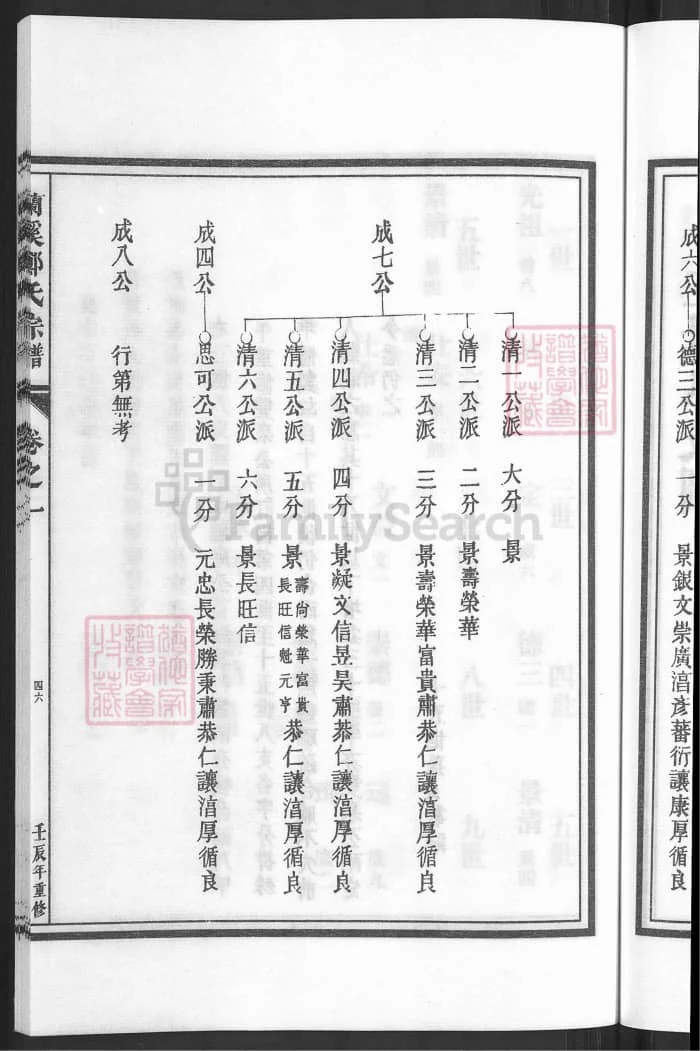 成六公
德三公派 一分 景銀文崇廣湻彥蕃衍讓康厚循良
成七公
清一公派 大分 景
清二公派 二分 景壽榮華
清三公派 三分 景壽榮華富貴肅恭仁讓湻厚循良
清四公派 四分 景凝文信昱昊肅恭仁讓湻厚循良
清五公派 五分 景 壽尙榮華富貴 長旺信魁元亨 恭仁讓湻厚循良
清六公派 六分 景長旺信
成四公
思可公派 一分 元忠長榮勝秉肅恭仁讓湻厚循良
成八公 行第無考
蘭溪鄭氏宗譜
卷之一
四六
壬辰年重修
猶他家譜學會收藏
猶他家譜學會收藏
FamilySearch